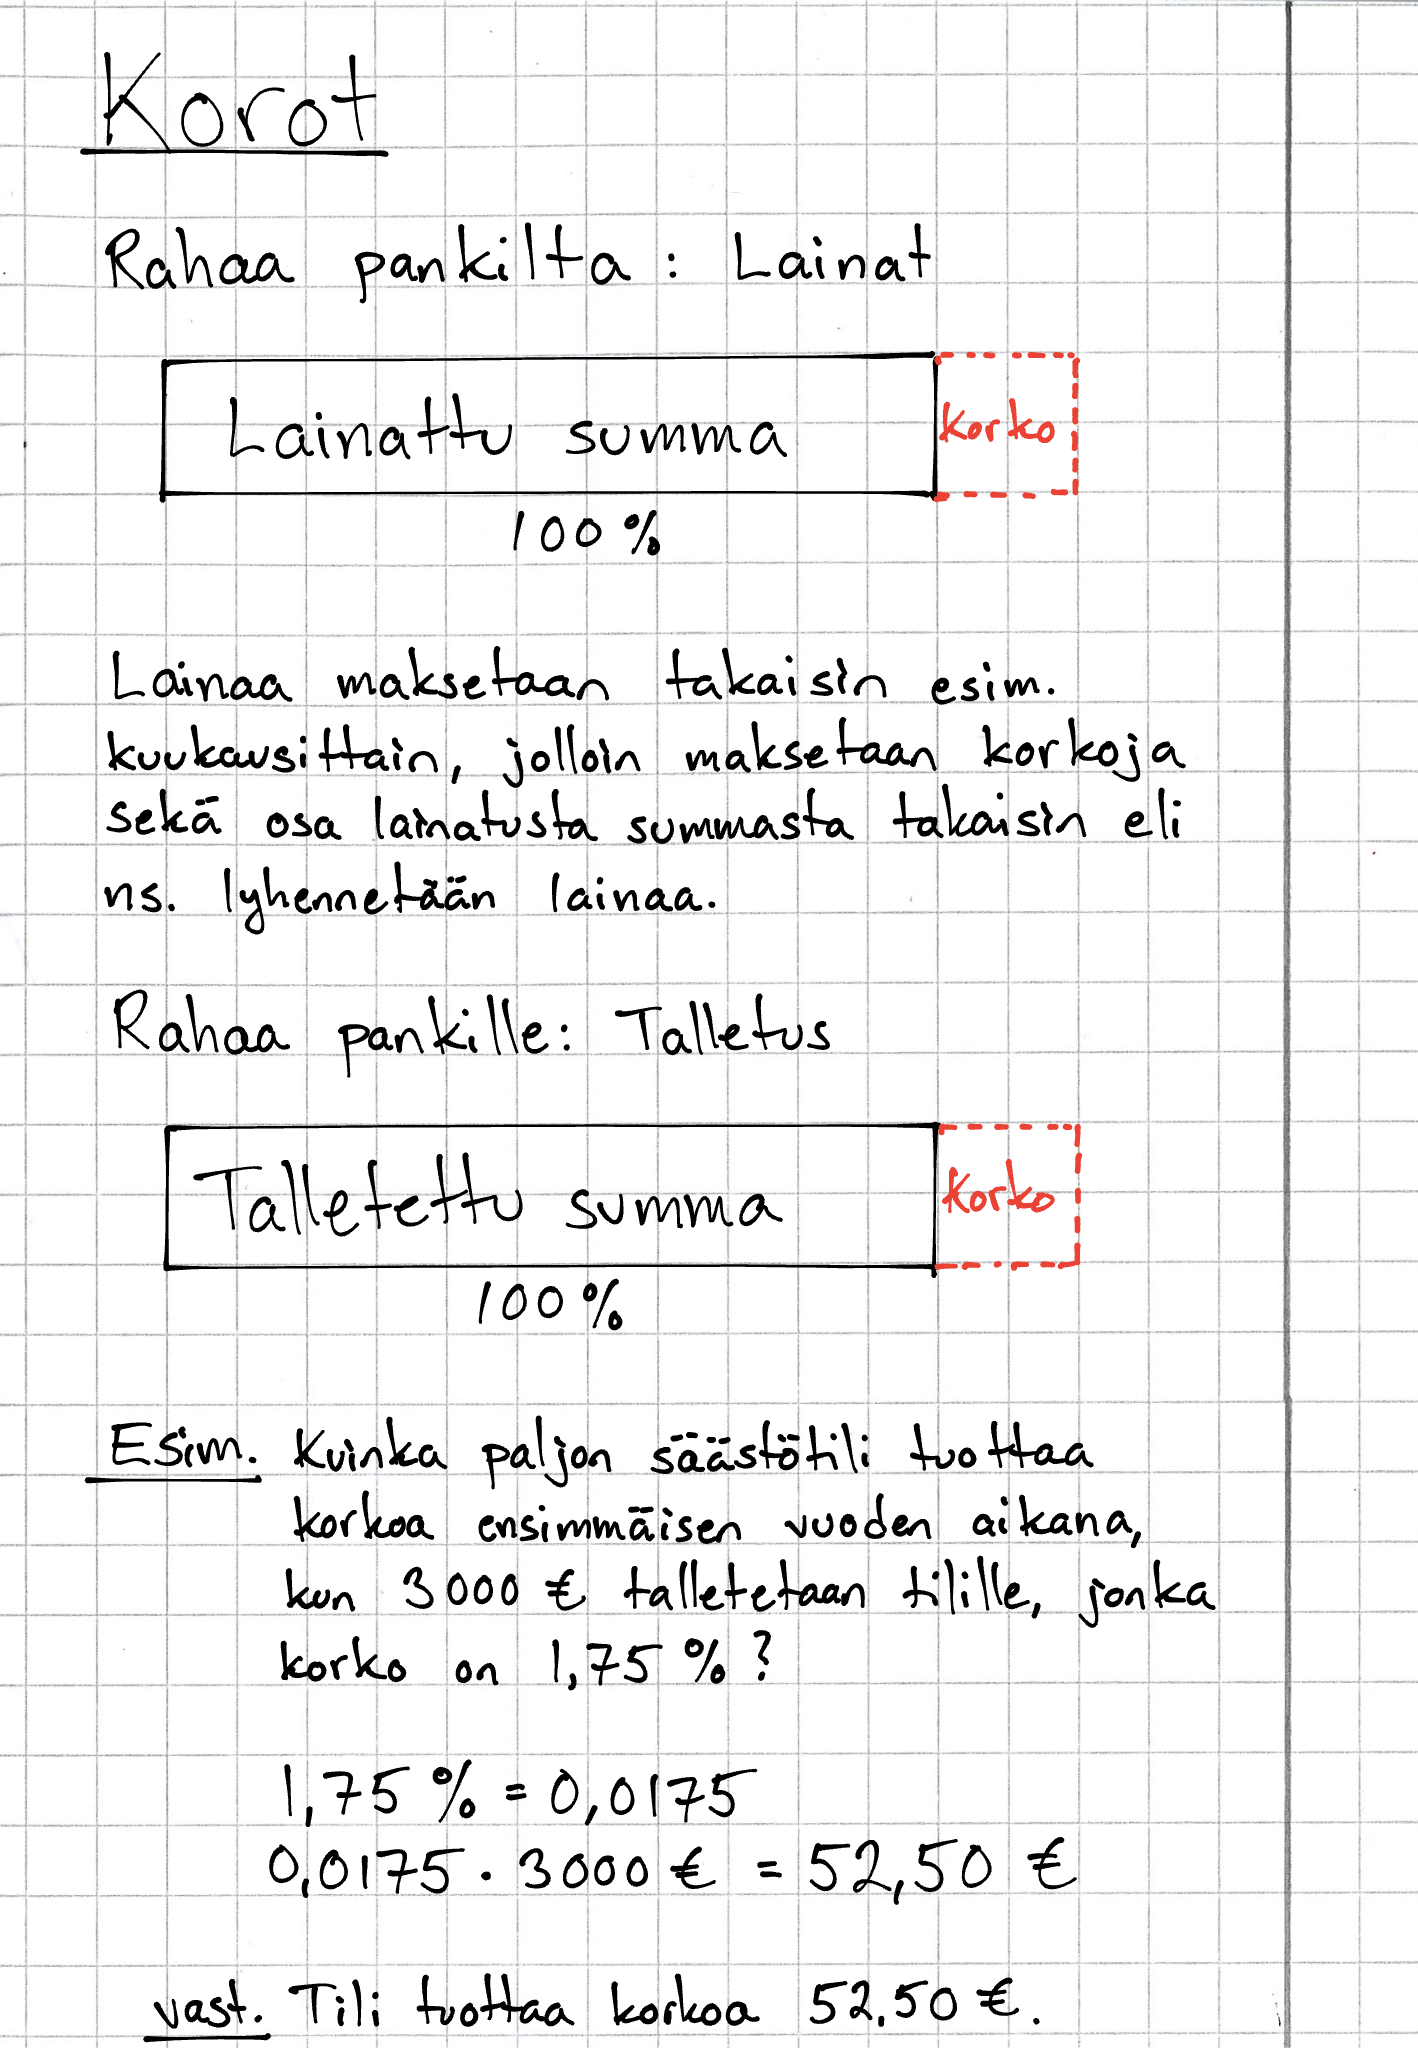 Korot
Rahaa pankilta: Lainat
Lainattu summa korko
100 %
Lainaa maksetaan takaisin esim.
kuukausittain, jolloin maksetaan korkoja
sekä osa lainatusta summasta takaisin eli
ns. lyhennetään lainaa.
Rahaa pankille: Talletus
Talletettu summa korko
100 %
Esim. Kuinka paljon säästötili tuottaa
korkoa ensimmäisen vuoden aikana,
kun 3000 € talletetaan tilille, jonka
korko on 1,75 %?
1,75 % = 0,0175
0,0175 · 3000 € = 52,50 €
vast. Tili tuottaa korkoa 52,50 €.